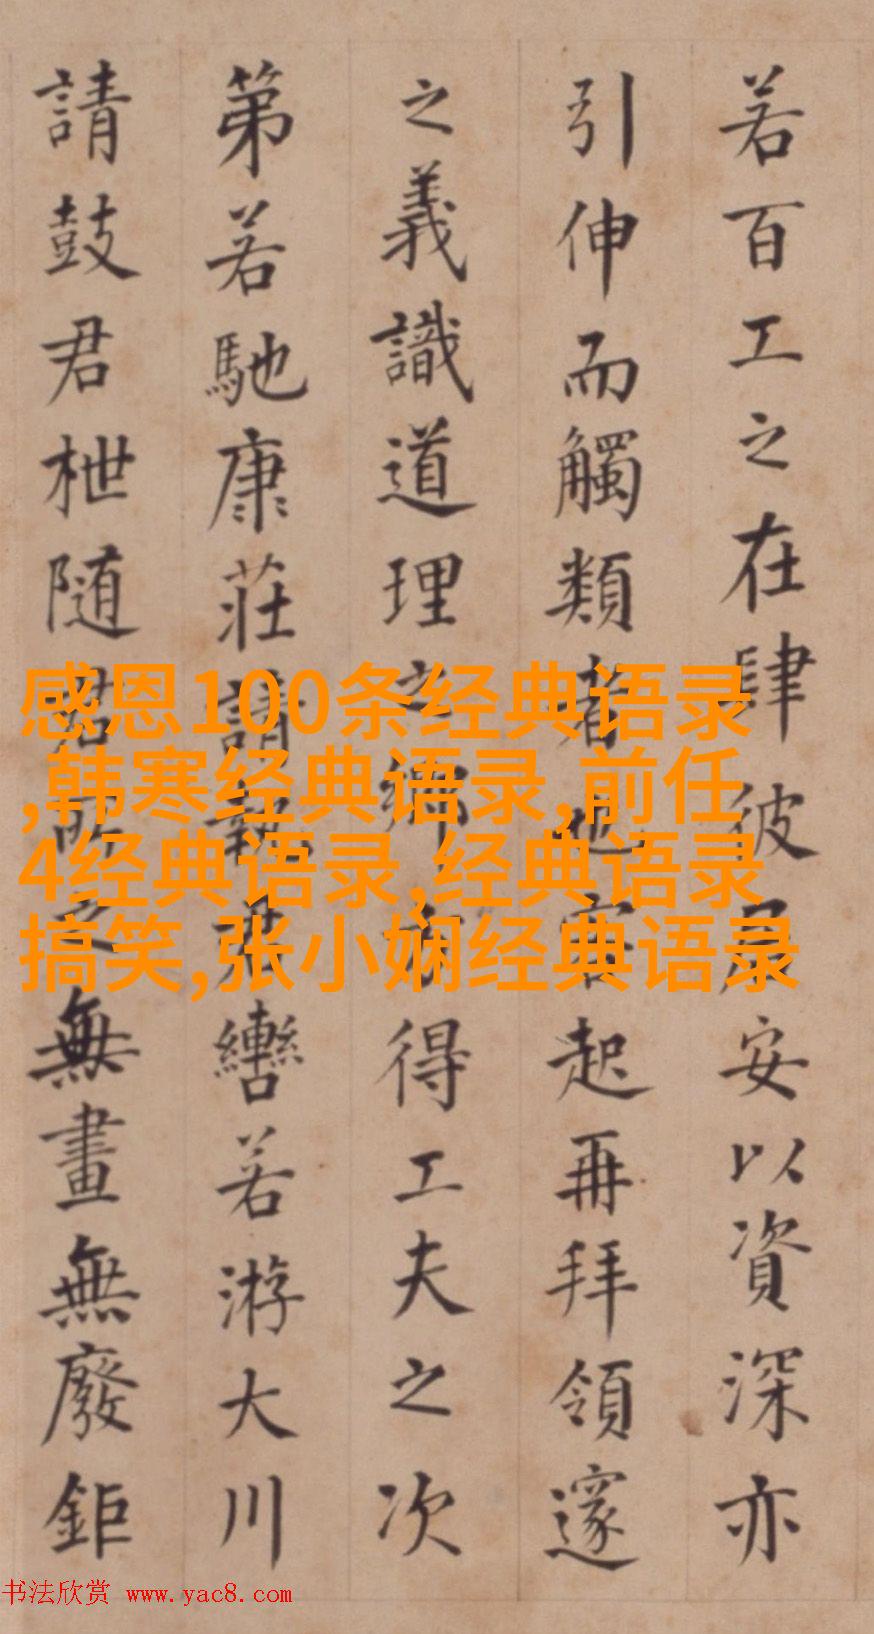 若百工之在肆彼居安以資深亦
引伸而觸類者也客起再拜領邃
之義識道理之鄉得工夫之次
第若馳康莊請執君轡若游大川
請鼓君枻随君所之無畫無廢鉅
感恩100条经典语录
,韩寒经典语录,前任
4经典语录,经典语录
搞笑,张小娴经典语录
书法欣赏 www.yac8.com